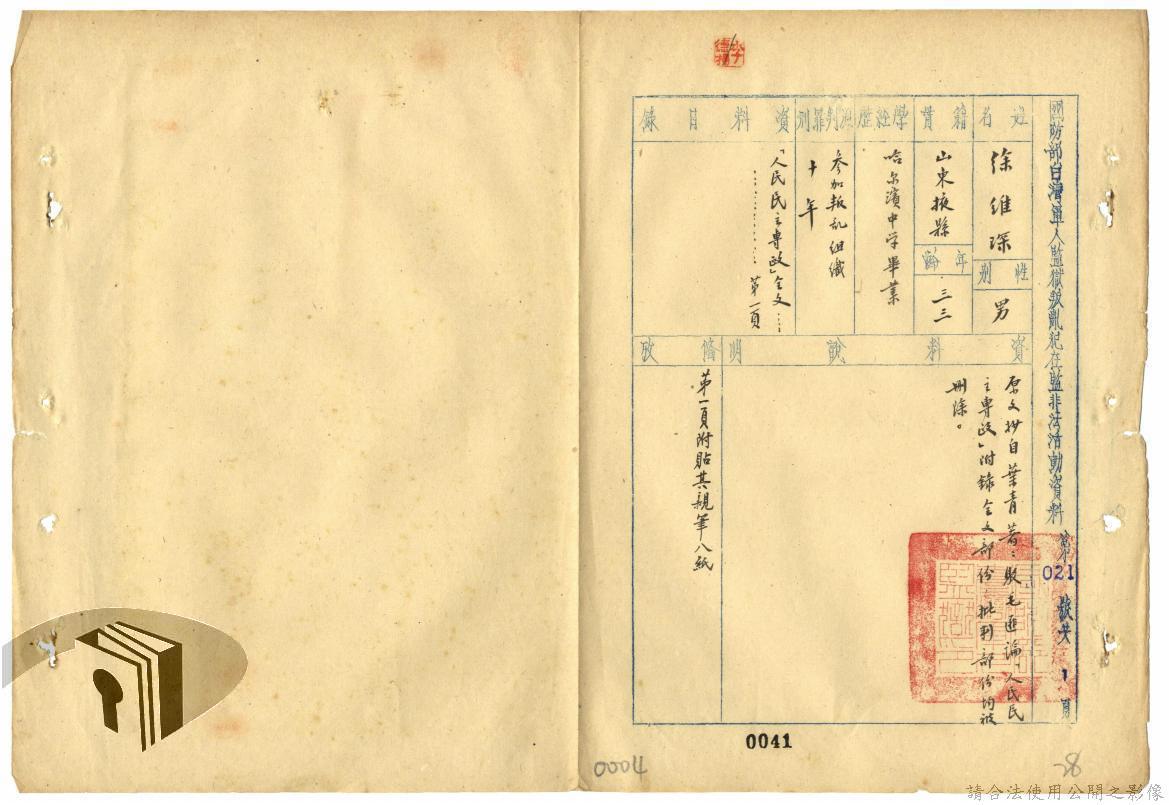 國防部台灣軍人監獄叛亂犯在監非法活動資料 第021號共1頁
姓名
徐維琛
性別
男
籍貫
山東掖縣
年齡
三三
學經歷
哈尔濱中学畢業
判罪刑期
參加叛乱組織
十年
資料目錄
「人民民主專政」全文……
………………第一頁
資料說明
原文抄自葉青著：駁毛匪論「人民民
主專政」附錄全文部份批判部份均被
刪除。
備攷
第一頁附貼其親筆八紙
0041
0004
28
請合法使用公開之影像